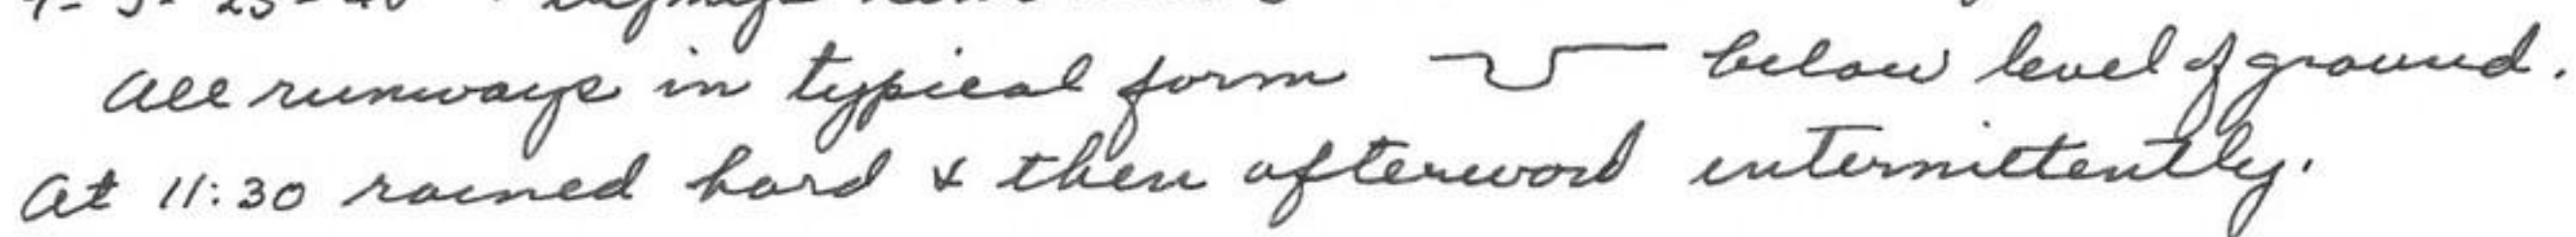 All runways in typical form below level of ground.
At 11:30 rained hard & then afterward intermittently.